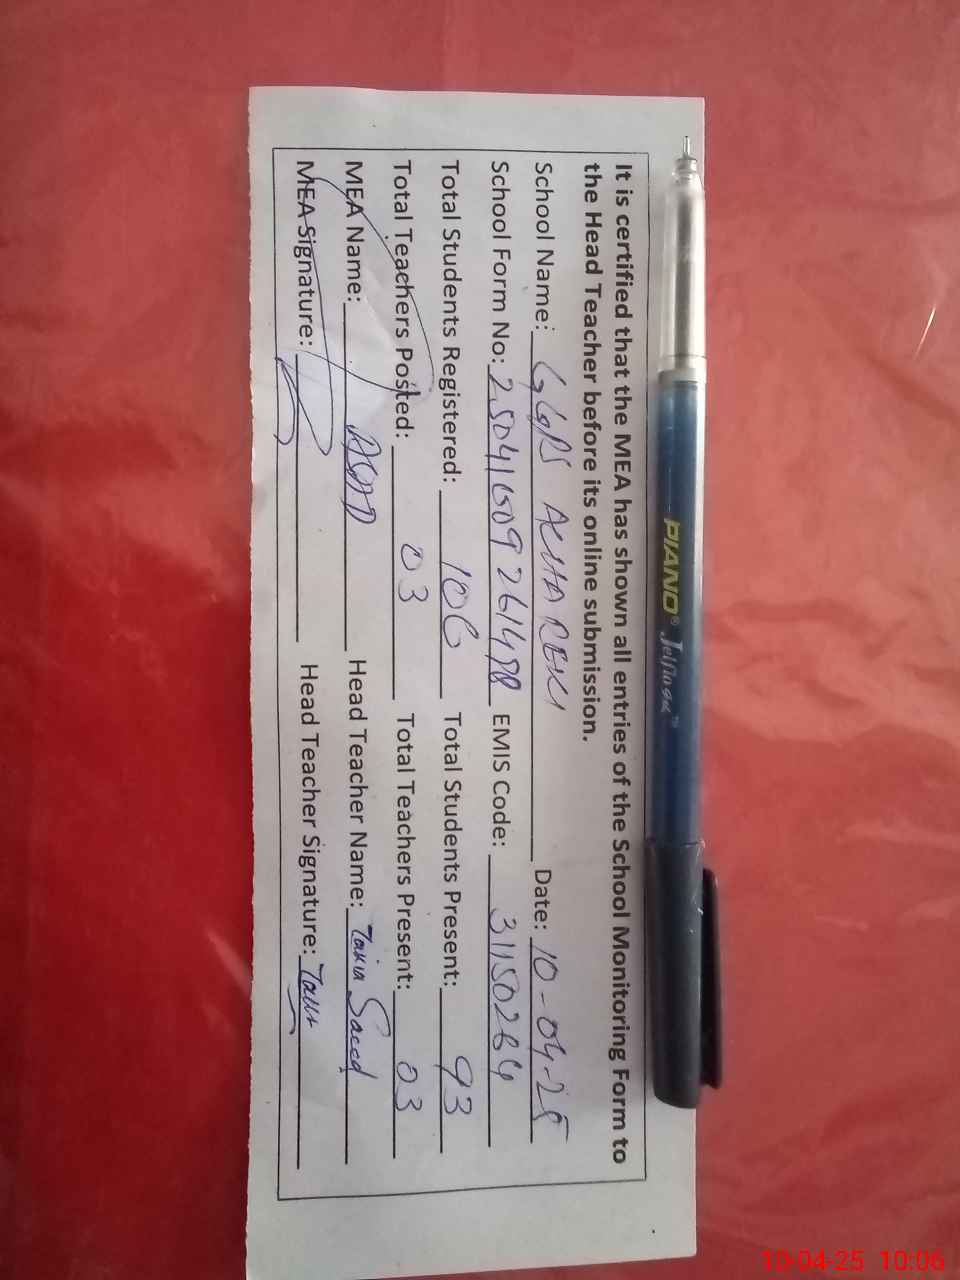 It is certified that the MEA has shown all entries of the School Monitoring Form to
the Head Teacher before its online submission.
School Name: GGPS Date: 10-04-25
School Form No: EMIS Code: 31150264
Total Students Registered: 106 Total Students Present: 93
Total Teachers Posted: 03 Total Teachers Present: 03
MEA Name: ASAD Head Teacher Name: Saeed
MEA Signature: Head Teacher Signature:
PIANO®
10-04-25 10:06